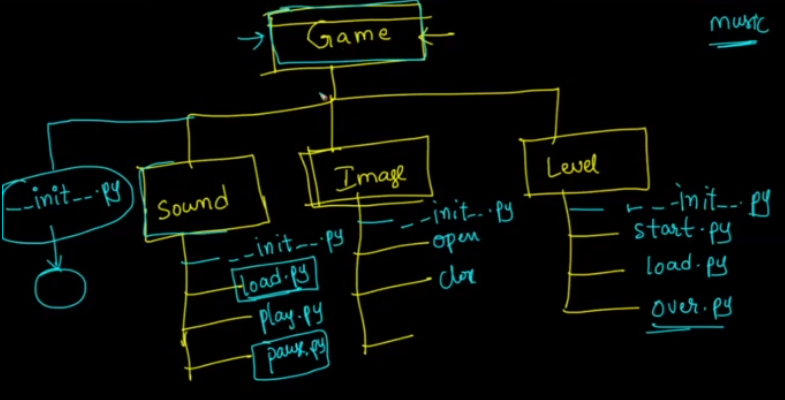 music
Game
__init__.py
Sound
__init__.py
load.py
play.py
pause.py
Image
__init__.py
open
close
Level
__init__.py
start.py
load.py
over.py